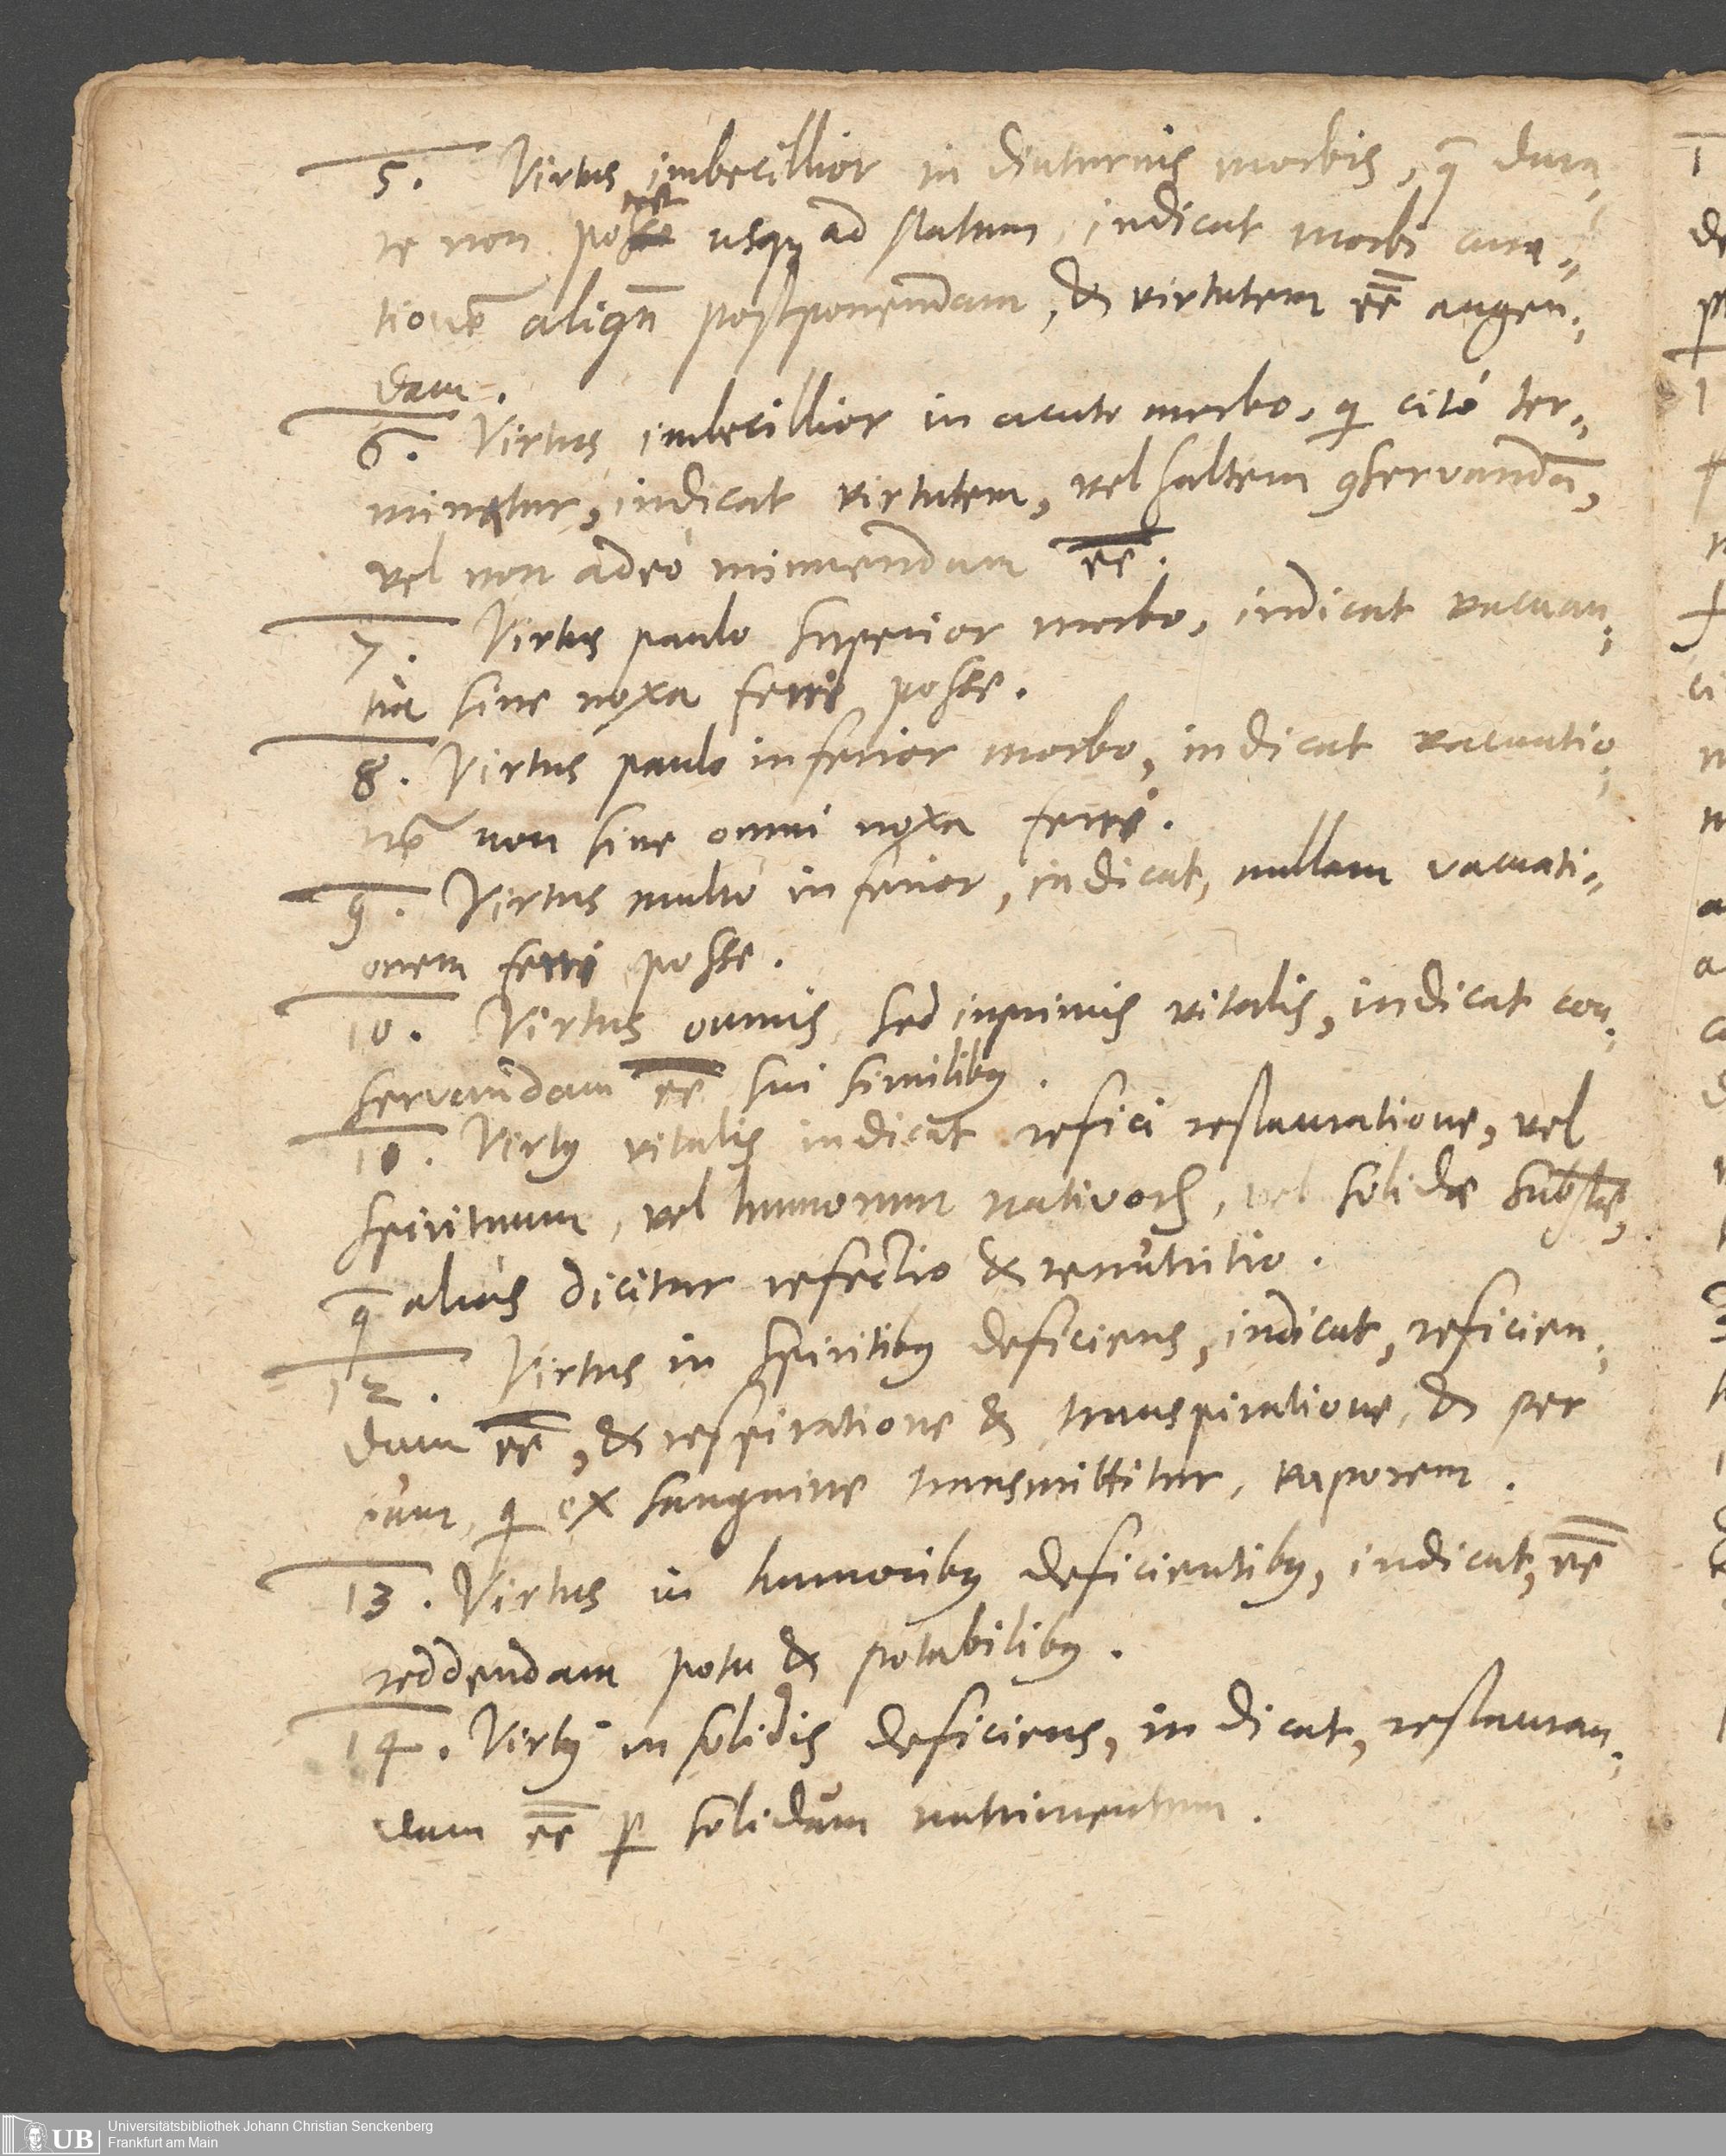 5. Virtus imbecillior in diuturnis morbis, q̄ dura„
re non potest usq; ad statum, indicat morbi cura„
tionē aliqn̄ postponendam, & virtutem eē augen„
dam.
6. Virtus imbecillior in acuto morbo, q citò ter„
minatur, indicat virtutem, vel saltem 9servandā,
vel non adeò minuendam eē.
7. Virtus paulo superior morbo, indicat vacuan„
tia sine noxa ferri posse.
8. Virtus paulo inferior morbo, indicat vacuatio„
nē non sine omni noxa ferri.
9. Virtus multò inferior, indicat, nullam vacuati„
onem ferri posse.
10. Virtus omnis, sed inprimis vitalis, indicat con„
servandam eē sui similibꝰ.
11. Virtꝰ vitalis indicat refici restauratione, vel
spirituum, vel humorum nativorꝝ, vel solidæ subst̄æ,
q̄ aliàs dicitur refectio & renutritio.
12. Virtus in spiritibꝰ deficiens, indicat, reficien„
dam eē, & respiratione & transpiratione, & per
eum, q ex sanguine transmittitur, vaporem.
13. Virtus in humoribꝰ deficientibꝰ, indicat, eē
reddendam potu & potabilibꝰ.
14. Virtꝰ in solidis deficiens, indicat, restauran„
dam eē ꝑ solidum nutrimentum.
1
de
p
1
n
ci
a
a
UB
Universitätsbibliothek Johann Christian Senckenberg
Frankfurt am Main